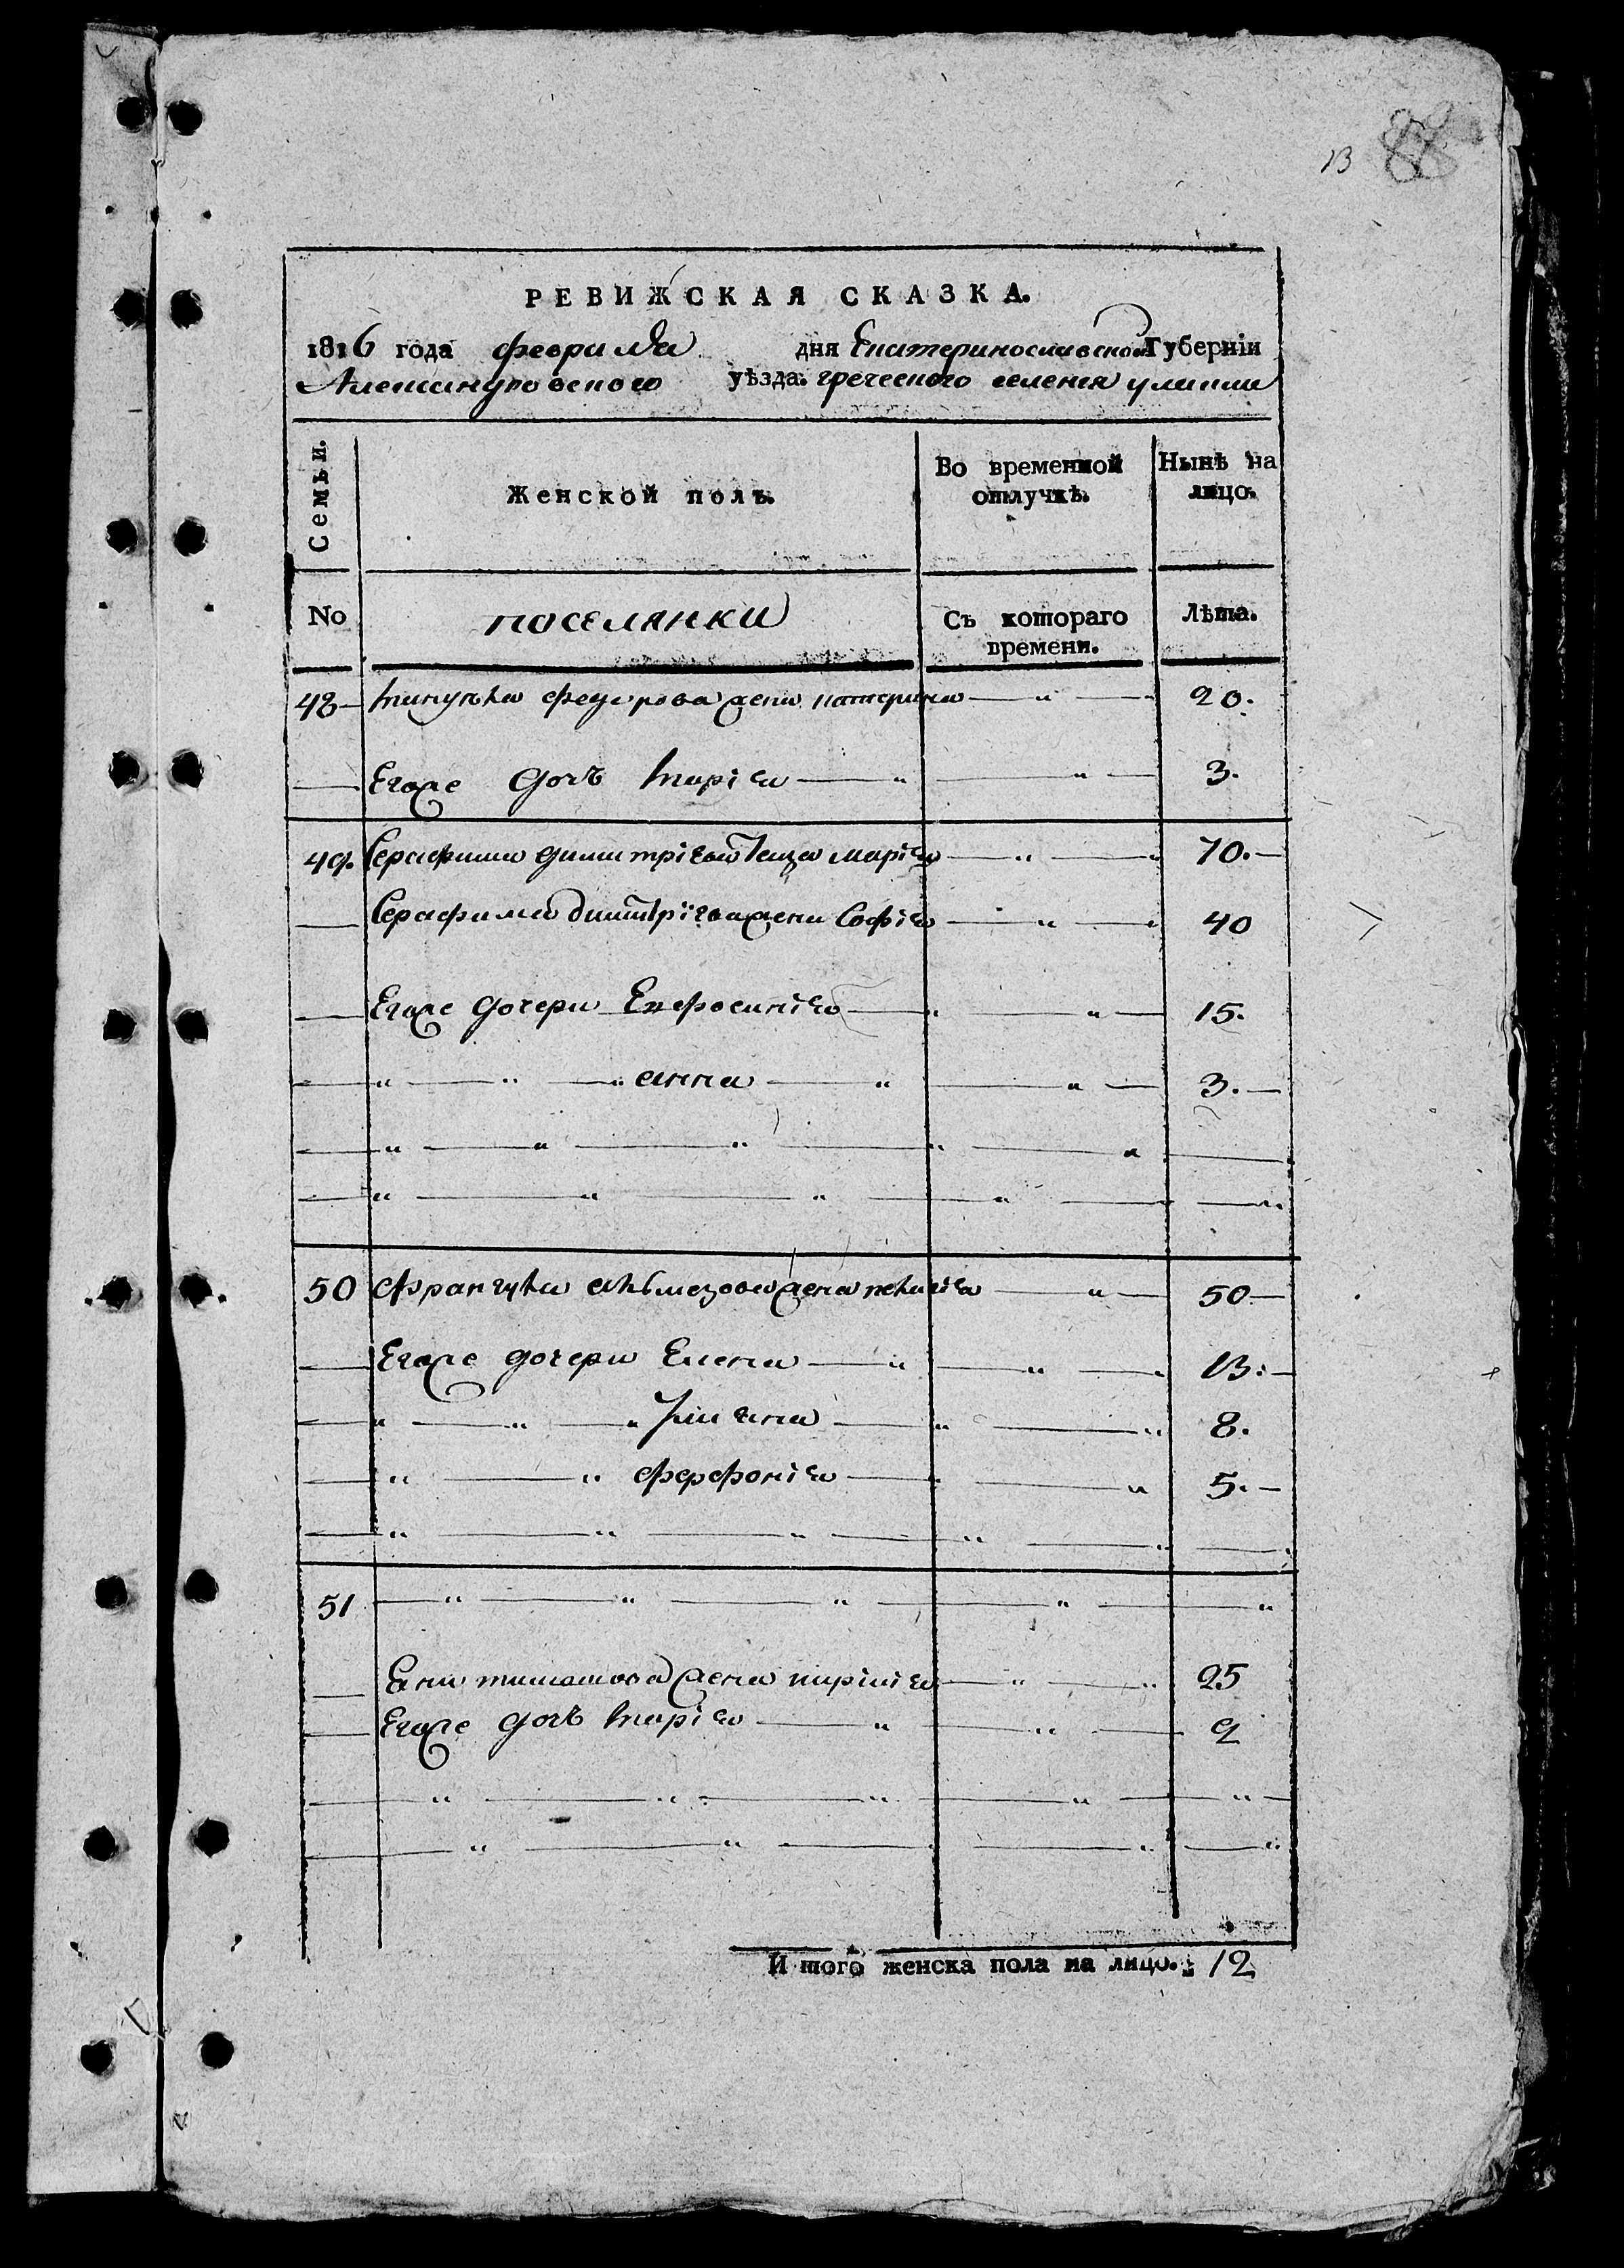 13 88
РЕВИЖСКАЯ СКАЗКА.
1816 года февраля дня Екатеринославской Губерніи
Александровского уѣзда. греческого селения улаклы
Семьи. Женской полъ. Во временной отлучкѣ. Нынѣ на лицо.
No поселянки Съ котораго времени. Лѣта.
48 федорова жена катерина 20.
Егоже дочь Марія 3.
49. Серафима дмитріева теща марія 70.
Серафима дмитріева жена Софія 40
Егоже дочери Ефросинія 15.
анна 3.
50 жена 50
Егоже дочери Елена 13.
8.
5.
51
жена 25
Егоже дочь Марія 2
Итого женска пола на лицо. 12